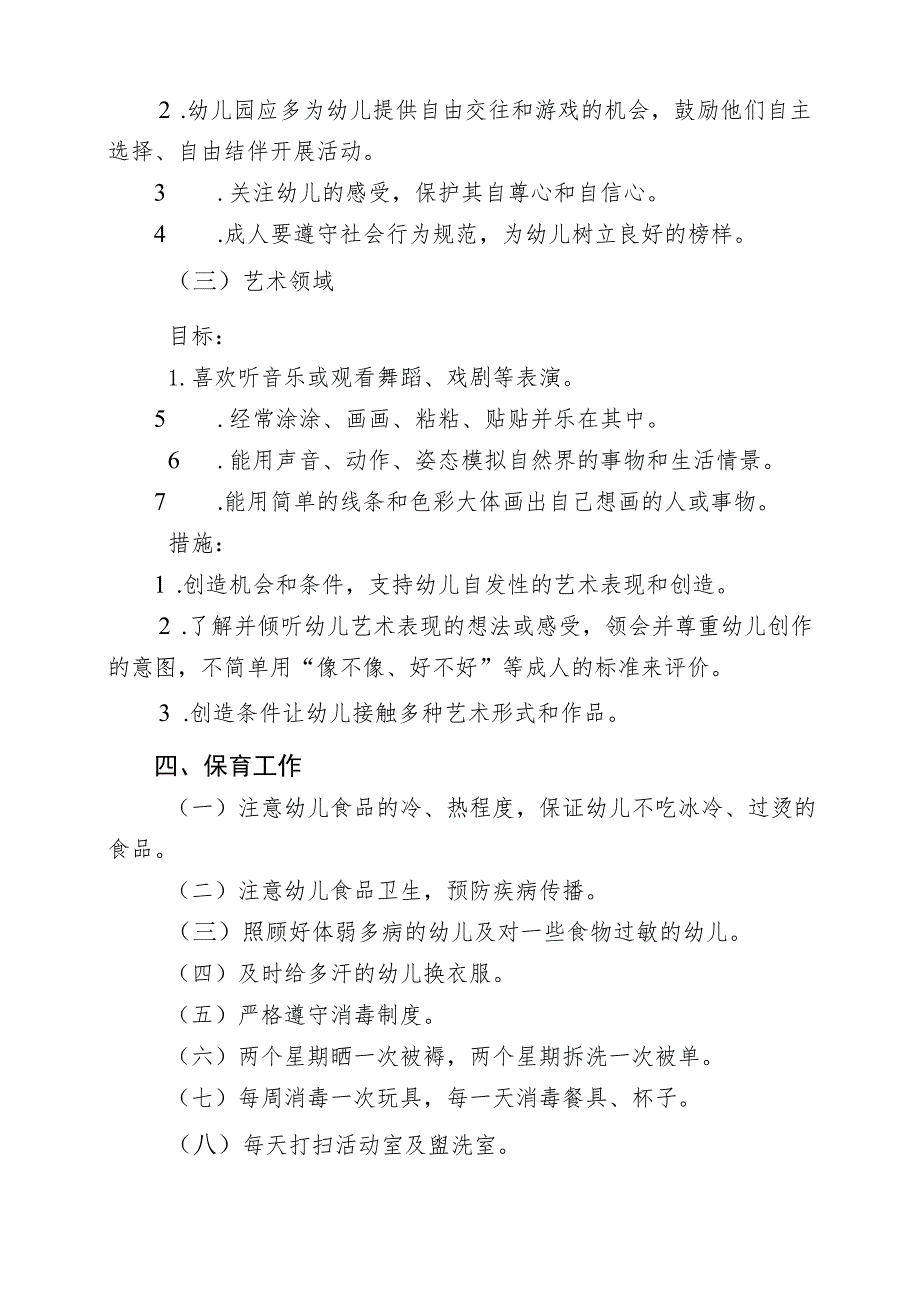 2 .幼儿园应多为幼儿提供自由交往和游戏的机会，鼓励他们自主
选择、自由结伴开展活动。
3 .关注幼儿的感受，保护其自尊心和自信心。
4 .成人要遵守社会行为规范，为幼儿树立良好的榜样。
（三）艺术领域
目标：
1. 喜欢听音乐或观看舞蹈、戏剧等表演。
5 .经常涂涂、画画、粘粘、贴贴并乐在其中。
6 .能用声音、动作、姿态模拟自然界的事物和生活情景。
7 .能用简单的线条和色彩大体画出自己想画的人或事物。
措施：
1 .创造机会和条件，支持幼儿自发性的艺术表现和创造。
2 .了解并倾听幼儿艺术表现的想法或感受，领会并尊重幼儿创作
的意图，不简单用“像不像、好不好”等成人的标准来评价。
3 .创造条件让幼儿接触多种艺术形式和作品。
四、保育工作
（一）注意幼儿食品的冷、热程度，保证幼儿不吃冰冷、过烫的
食品。
（二）注意幼儿食品卫生，预防疾病传播。
（三）照顾好体弱多病的幼儿及对一些食物过敏的幼儿。
（四）及时给多汗的幼儿换衣服。
（五）严格遵守消毒制度。
（六）两个星期晒一次被褥，两个星期拆洗一次被单。
（七）每周消毒一次玩具，每一天消毒餐具、杯子。
（八）每天打扫活动室及盥洗室。